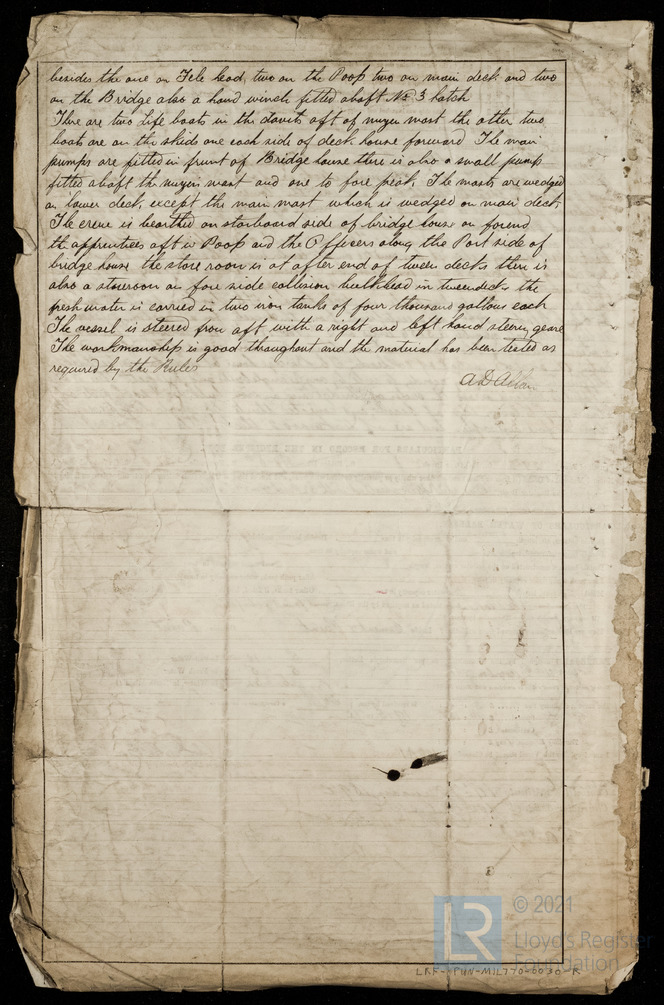 besides the one on Fcle head, two on the Poop two on main deck and two
on the Bridge also a hand winch fitted abaft No 3 hatch
There are two life boats in the davits aft of mizen mast the other two
boats are on the skids one each side of deck house forward The main
pumps are fitted in front of Bridge house there is also a small pump
fitted abaft the mizen mast and one to fore peak, The masts are wedged
on lower deck, except the main mast which is wedged on main deck
The crew is bearthed on starboard side of bridge house on
the apprentices aft in Poop and the Officers along the Port side of
bridge house the store room is at after end of tween decks there is
also a storeroom on fore side collision bulkhead in tweendecks the
fresh water is carried in two iron tanks of four thousand gallons each
The vessel is steered from aft with a right and left hand steering geare
The workmanship is good throughout and the material has been tested as
required by the Rules
A D Allan
© 2021
LR
Lloyd's Register
Foundation
LRF-PUN-MIL770-0030-R